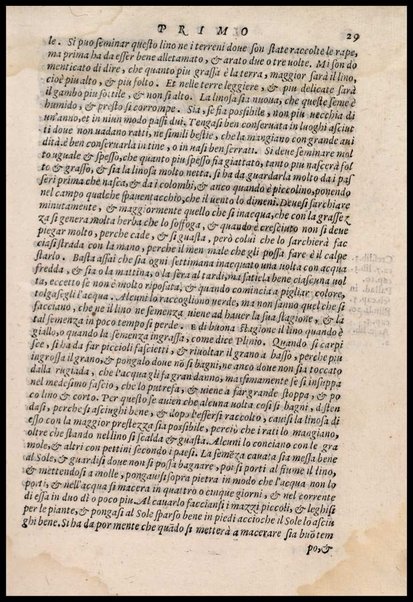 PRIMO 29
le. Si puo seminar questo lino ne i terreni doue son state raccolte le rape,
ma prima ha da esser bene alletamato, & arato due o tre uolte. Mi son do
menticato di dire, che quanto piu grassa è la terra, maggior sarà il lino,
cioè piu alto, & piu folto. Et nelle terre leggiere, & piu delicate sarà
il gambo piu sottile, & non si alto. La linosa sia nuoua, che queste seme è
humido, & presto si corrompe. Sia, se sia possibile, non piu uecchia di
un'anno, et in niun modo passi dui. Tengasi ben conseruata in luoghi asciut
ti doue non uadano ratti, ne simili bestie, che la mangiano con grande aui
dità. è ben conseruarla in tine, o in uasi ben serrati. Si deue seminare mol
to uguale & spesso, che quanto piu spesso sia giattato, tanto piu nascerà fol
to & grasso, & sia la linosa molto netta. si ha da guardarla molto dai pas
seri prima che nasca, & da i colombi, & anco quando è piccolino, ponendo
nel campo qualche spauentacchio, che il uento lo dimeni. Deuesi sarchiare
minutamente, & maggiormente quello che si inacqua, che con la grassez
za si genera molta herba che lo soffoga, & quando è cresciuto non si deue
piegar molto, perche cade, & si guasta, però colui che lo sarchierà fac
cia si strada con la mano, perche il men male che gli possa fare è il calpe
starlo. Basta assai che sia ogni settimana inacquato una uolta con acqua
fredda, & sia o la mattina, o la sera al tardi, ma sarà ben ciascuna uol
ta, eccetto se non è molto riposata, & quando comincia a pigliar colore,
tolgasegli l'acqua. Alcuni lo raccogliono verde, ma non sanno quel che si
facciano, che ne il lino ne semenza uiene ad hauer la sua stagione, & la
tal semenza in poco tempo si perde. è di buona stagione il lino quando è
giallo, o quando la semenza ingrassa, come dice Plinio. Quando si carpi
sce, si ha da far piccioli fascietti, & riuoltar il grano a basso, perche piu
ingrossa il grano, & pongalo doue nõ si bagni, ne anco doue non sia toccato
dalla rugiada, che l'acqua gli fa gran danno, massimamente se si insuppa
nel medesimo fascio, che lo putrefa, & uiene a far grande stoppa, & po
co lino & corto. Per questo se auien che alcuna uolta cosi si bagni, disten
dasi, perche si asciughi bene, & dopo l'essersi raccolto, causi la linosa di
esso con la maggior prestezza sia possibile, perciò che i ratti lo mangiano,
oltre che stando nel lino si scalda & guasta. Alcuni lo conciano con le gra
mole, & altri con pettini secondo i paesi. La semẽza cauata sia messa bene
al Sole, & guardisi doue non si possa bagnare, poi si porti al fiume il lino,
& mettendosi a molle, pongauisi sopra pietra in modo che l'acqua non lo
porti, & nell'acqua si macera in quattro o cinque giorni, & nel corrente
di essa in duo dì o poco piu. Al cauarlo faccianſi i mazzi piccoli, & leghisi
per le piante, & pongasi al Sole sparso bene in piedi accioche il Sole lo asciu
ghi bene. Si ha da por mente che quãdo si metterà a macerare sia buõ tem
po, &